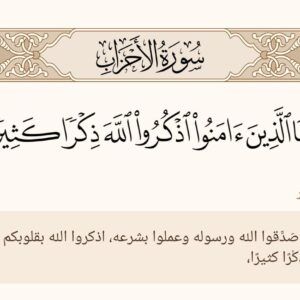 سُورَةُ الْأَحْزَابِ
ٱلَّذِينَ ءَامَنُوا۟ ٱذْكُرُوا۟ ٱللَّهَ ذِكْرًا
صَدَّقوا الله ورسوله وعملوا بشرعه، اذكروا الله بقلوبكم
كثيرًا،